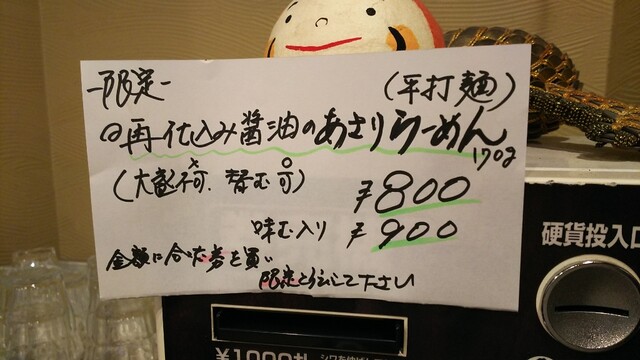 -限定-
(平打麺)
再仕込み醤油のあさりらーめん
170g
(大盛不可、替む可)
¥800
味む入り ¥900
金額に合った券を買い
限定と伝して下さい
硬貨投入口
¥1000札